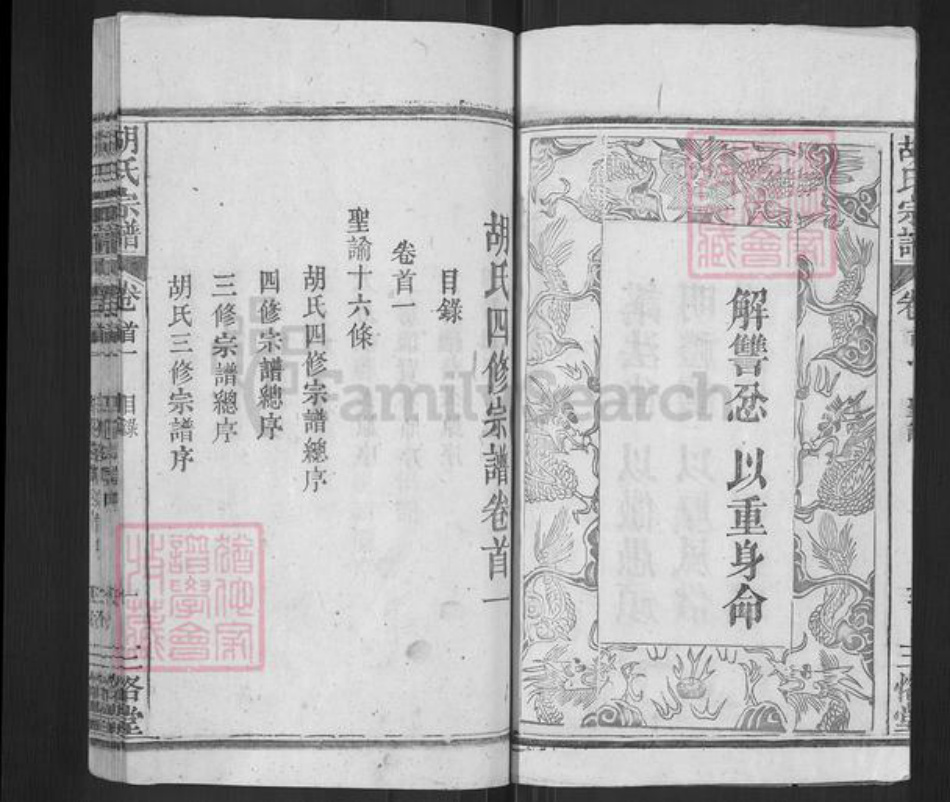 胡氏宗譜
卷首
解讐忿以重身命
胡氏四修宗譜卷首一
目錄
卷首一
聖諭十六條
胡氏四修宗譜總序
四修宗譜總序
三修宗譜總序
胡氏三修宗譜序
胡氏宗譜
卷首一
目錄
一
三恪堂
FamilySearch